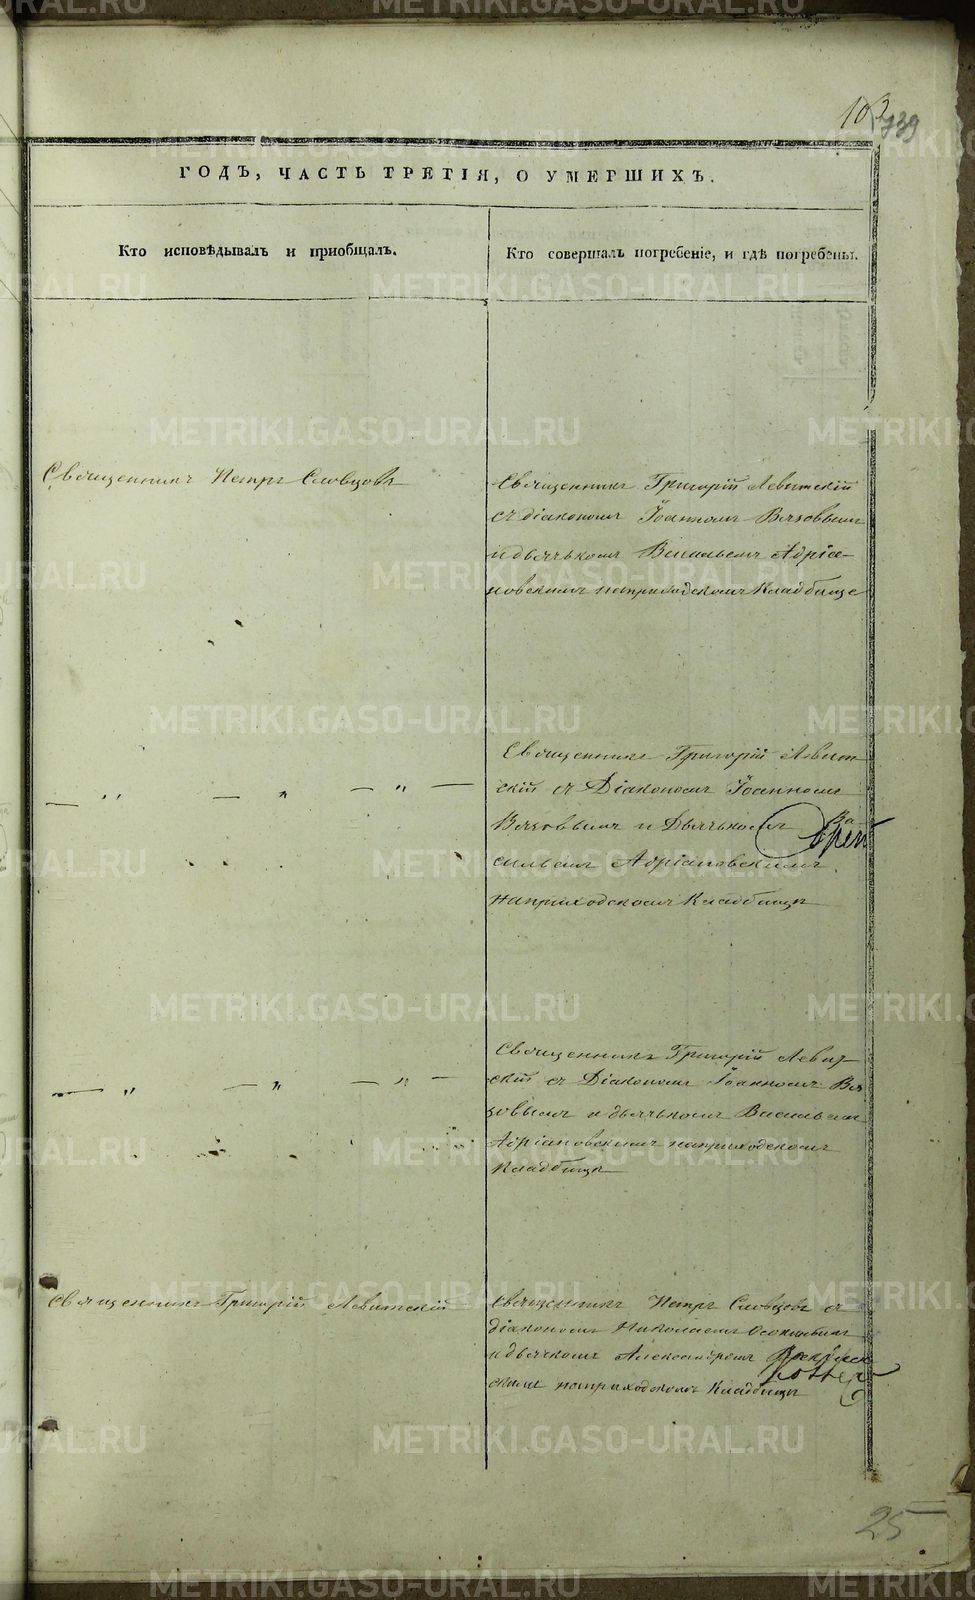 103
739
ГОДЪ, ЧАСТЬ ТРЕТІЯ, О УМЕРШИХЪ.
Кто исповѣдывалъ и пріобщалъ.
Кто совершалъ погребеніе, и гдѣ погребены.
Священникъ Петръ Словцовъ
Священникъ Григорій Левитскій
съ діакономъ Іоанномъ Вязовымъ
и дьячькомъ Васильемъ Адріа-
новскимъ на приходскомъ Кладбище
— „ — „ — „ —
Священникъ Григорій Левит-
скій съ Діакономъ Іоанномъ
Вязовымъ и Дьячькомъ Ва-
сильемъ Адріановскимъ
на приходскомъ Кладбищѣ
— „ — „ — „ —
Священникъ Григорій Левит-
скій съ Діакономъ Іоанномъ Вя
зовымъ и дьячькомъ Васильем
Адріановскимъ на приходскомъ
Кладбищѣ
Священникъ Григорій Левитскій
Священникъ Петръ Словцовъ съ
діакономъ Николаемъ
и дьячкомъ Александромъ
скимъ на приходскомъ Кладбищѣ
25
METRIKI.GASO-URAL.RU